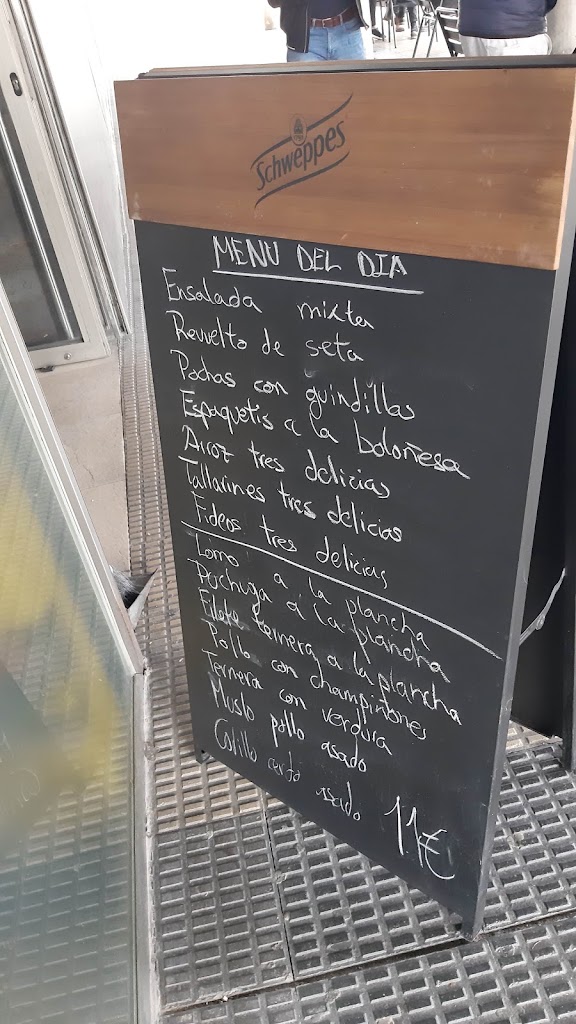 Schweppes
MENU DEL DIA
Ensalada mixta
Revuelto de seta
Pochas con guindillas
Espaguetis a la boloñesa
Arroz tres delicias
Tallarines tres delicias
Fideos tres delicias
Lomo a la plancha
Pechuga a la plancha
Filete ternera a la plancha
Pollo con champiñones
Ternera con verdura
Muslo pollo asado
asado
11€